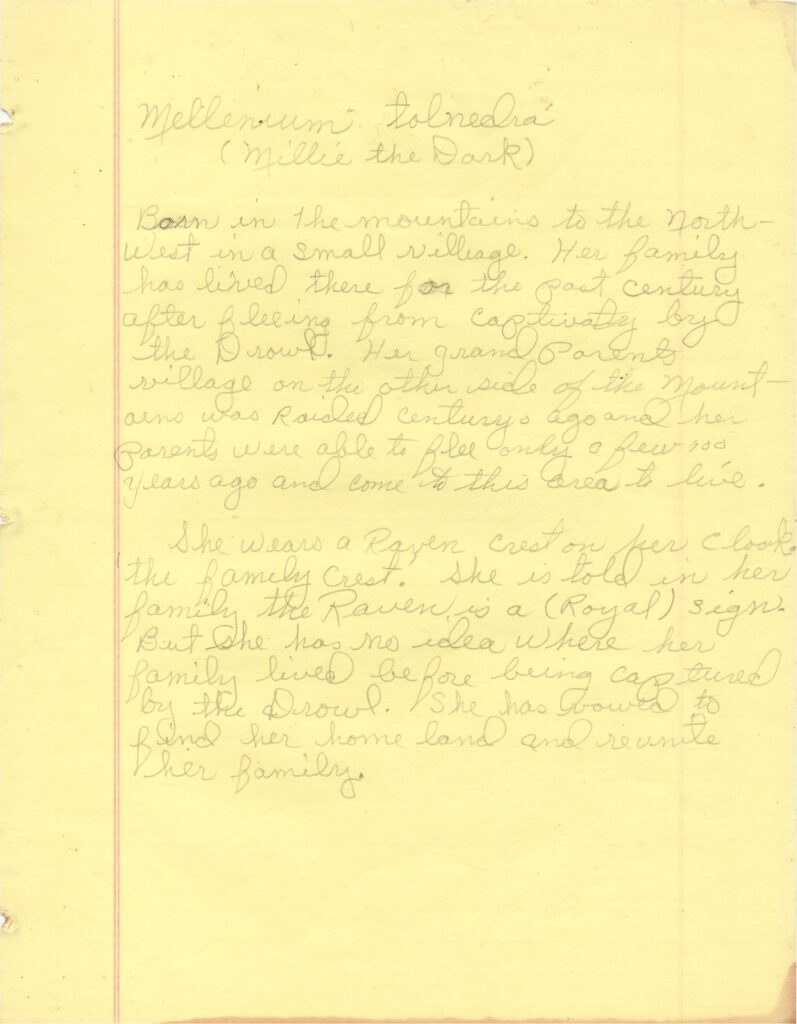 Mellenium tolnedra
(Millie the Dark)
Born in the mountains to the North-
West in a small villiage. Her family
has lived there for the past century
after fleeing from captivaty by
the Drowl. Her grand parents
village on the other side of the Mount-
ains was Raided centurys ago and her
parents were able to flee only a few 100
years ago and come to this area to live.
She wears a Raven crest on her cloak.
the family crest. She is told in her
family the Raven is a (Royal) sign.
But She has no idea where her
family lived before being captured
by the Drowl. She has vowed to
find her home land and reunite
her family.